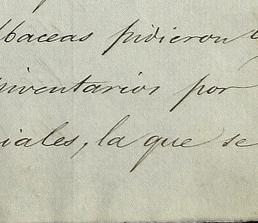 lbaceas pidieron
inventarios por
iales, la que se